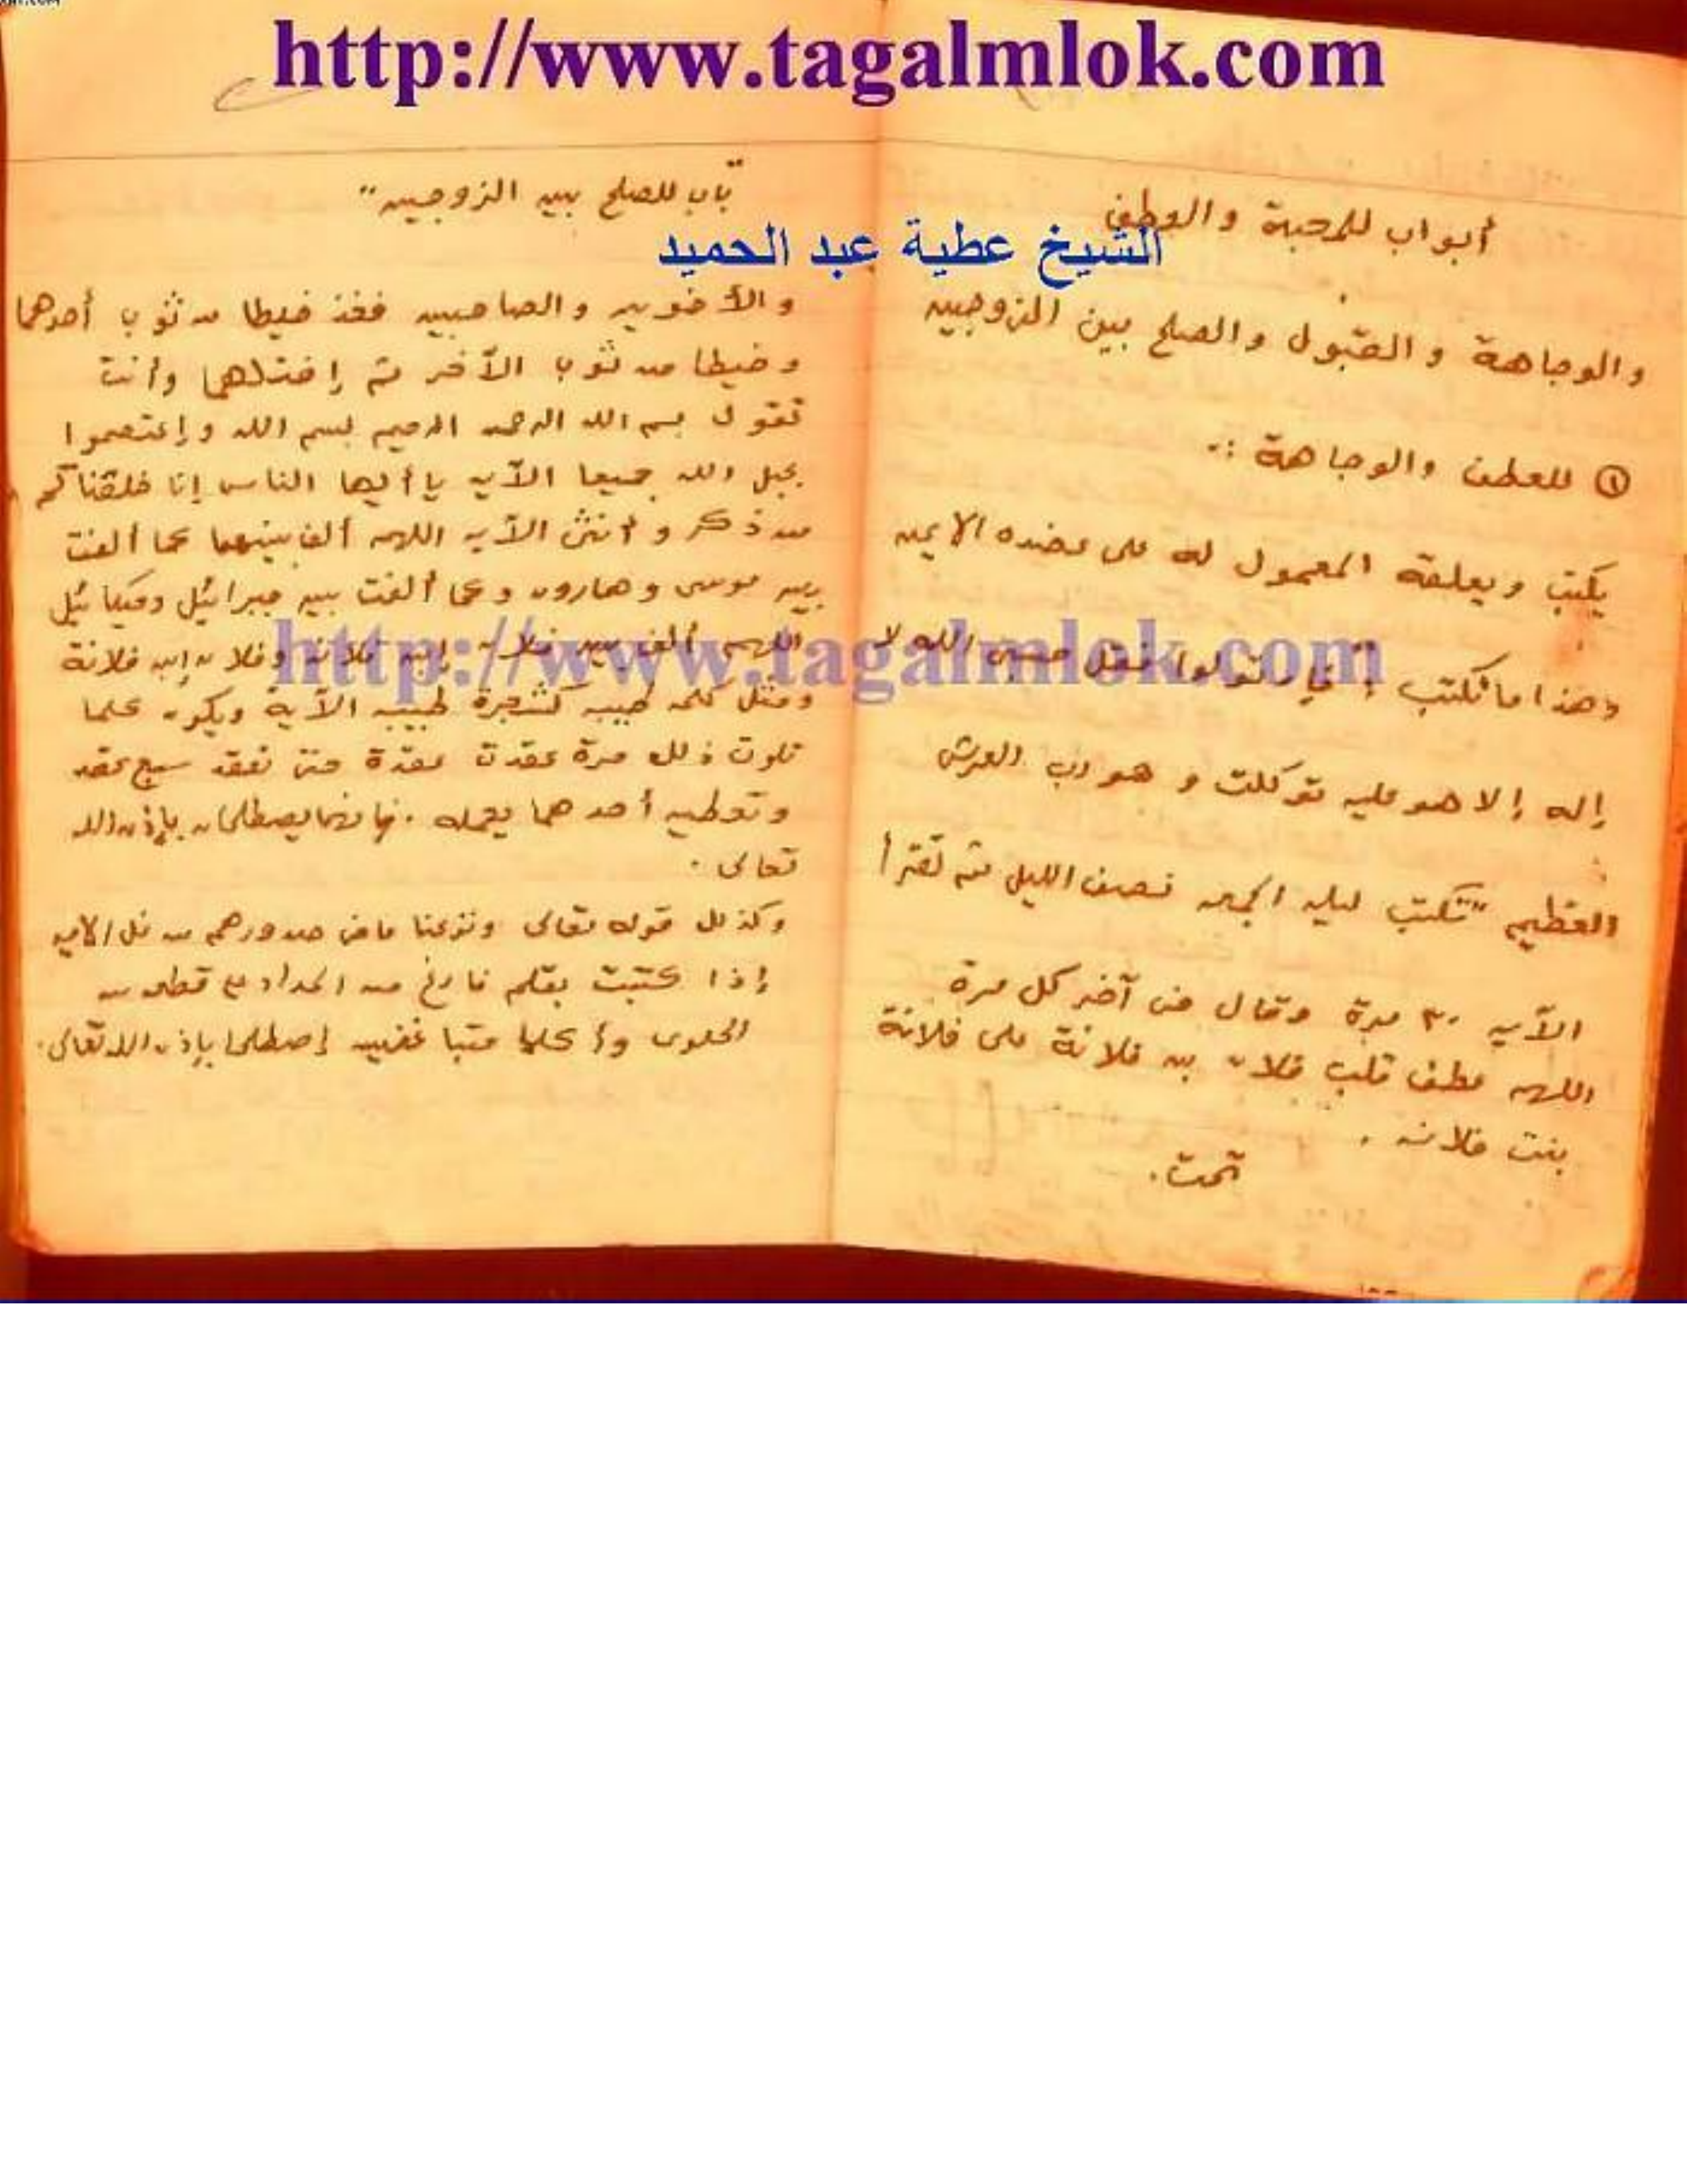 http://www.tagalmlok.com
أبواب للمحبة والعطف
الشيخ عطية عبد الحميد
والوجاهة والقبول والصلح بين الزوجين
① للعطف والوجاهة :.
يكتب ويعلقه المعمول له على عضده الايمن
وهذا ما تكتب " فإن تولوا فقل حسبى الله لا
إله إلا هو عليه توكلت و هو رب العرش
العظيم " تكتب ليله الجمعه نصف الليل ثم تقرأ
الآيه ٣٠ مرة وقال فى آخر كل مرة
اللهم عطف قلب فلان بن فلانة على فلانة
بنت فلانه .
تمت .
"باب للصلح بين الزوجين"
والأخوين والصاحبين فخذ خيطا من ثوب أحدهما
وخيطا من ثوب الآخر ثم إفتلهما وأنت
تقول بسم الله الرحمن الرحيم بسم الله وإعتصموا
بحبل الله جميعا الآيه يا أيها الناس إنا خلقناكم
من ذكر و أنثى الآيه اللهم ألف بينهما كما ألفت
بين موسى وهارون وكما ألفت بين جبرائيل وميكائيل
اللهم ألف بين فلان إبن فلانه وفلان إبن فلانة
ومثل كلمه طيبه كشجرة طيبه الآية ويكون كلما
تلوت ذلك مرة عقدت عقدة حتى تعقد سبع عقد
وتعطيه أحدهما يحمله . فإنهما يصطلحان بإذن الله
تعالى .
وكذلك قوله تعالى ونزعنا ما فى صدورهم من غل الايه
إذا كتبت بقلم فارغ من المداد على قطعه من
الحلوى وأكلها متباغضين إصطلحا بإذن الله تعالى .
http://www.tagalmlok.com